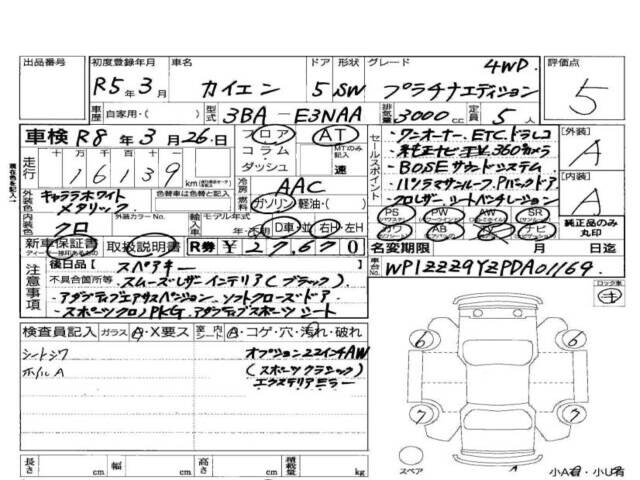 出品番号 初度登録年月 車名 ドア 形状 グレード 評価点
R5年3月 カイエン 5 SW 4WD. プラチナエディション 5
車歴 自家用・( ) 型式 3BA - E3NAA 排気量 3000 cc 定員 5 人
車検 R8年3月26日 フロア AT
コラム MTのみ記入
ダッシュ 速
走行 十万 万 千 百 十
16139 km
セールスポイント
・ワンオーナー、ETC、ドラレコ
・純正ナビ・TV、360カメラ
・BOSEサウンドシステム
・パノラマサンルーフ、Pバックドア
・クロレザーシートベンチレーション
[外装] A
[内装] A
外装色 キャララホワイトメタリック 色替車は色替と記入
冷房 AAC
燃料 ガソリン・軽油・( )
内装色 クロ 外装カラーNo. モデル年式 輸入車 D車・並 右H・左H
PS PW AW SR
カワ AB TV ナビ
純正品のみ丸印
新車保証書 取扱説明書 R券 ¥27,670
名変期限 月 日迄
車台No. WP1ZZZ9YZPDA01169
注意事項
後日品[ スペアキー ]
不具合箇所等 スムースレザーインテリア(ブラック)
・アダプティブエアサスペンション ソフトクローズドア
・スポーツクロノPKG、アダプティブスポーツシート
ロック車
検査員記入 ガラス A・X要ス 室内シート A・コゲ・穴・汚れ・破れ
シートシワ オプション22インチAW
ホイルA (スポーツクラシック)
エクステリアミラー
6 6
7 7
スペア
小A有・小U有
長さ cm 幅 cm 高さ cm 積載量 kg